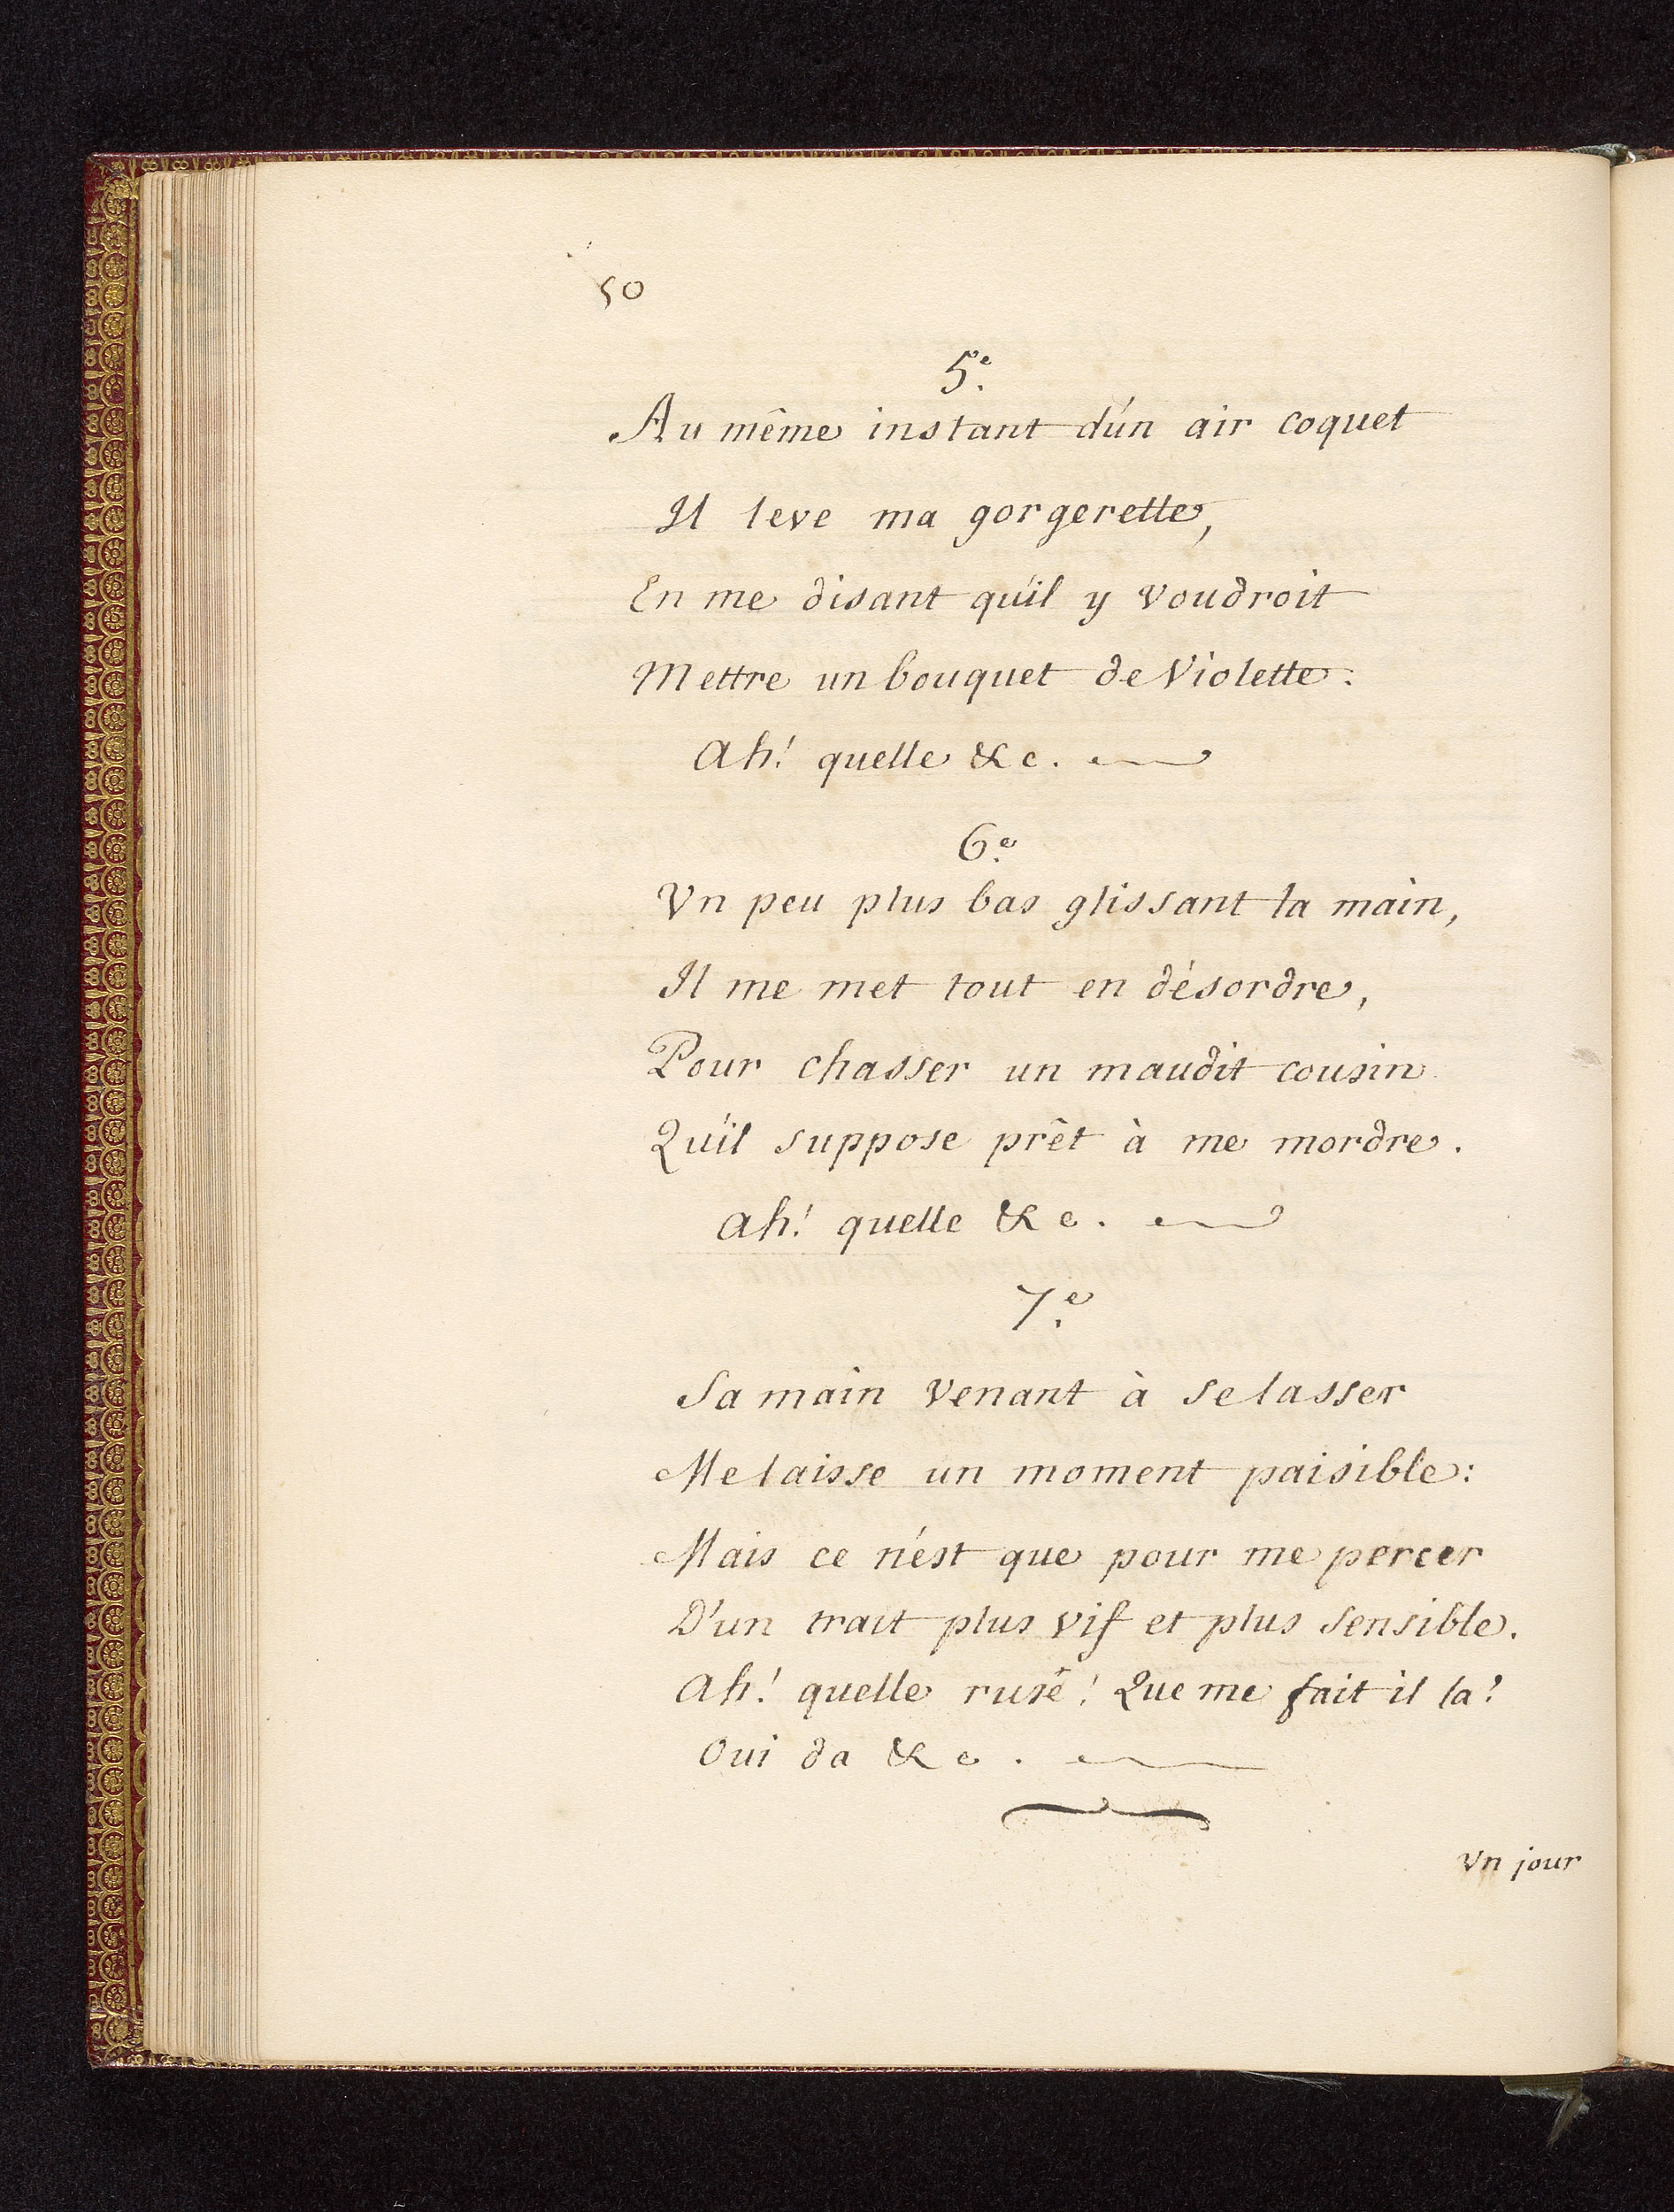 50
5.e
Au même instant d'un air coquet
Il leve ma gorgerette,
En me disant qu'il y voudroit
Mettre un bouquet de Violette.
Ah! quelle &c.
6.e
Vn peu plus bas glissant la main,
Il me met tout en désordre,
Pour chasser un maudit cousin
Qu'il suppose prêt à me mordre.
Ah! quelle &c.
7.e
Sa main venant à se lasser
Me laisse un moment paisible:
Mais ce n'est que pour me percer
D'un trait plus vif et plus sensible.
Ah! quelle rusé! Que me fait il la?
Oui da &c.
Vn jour